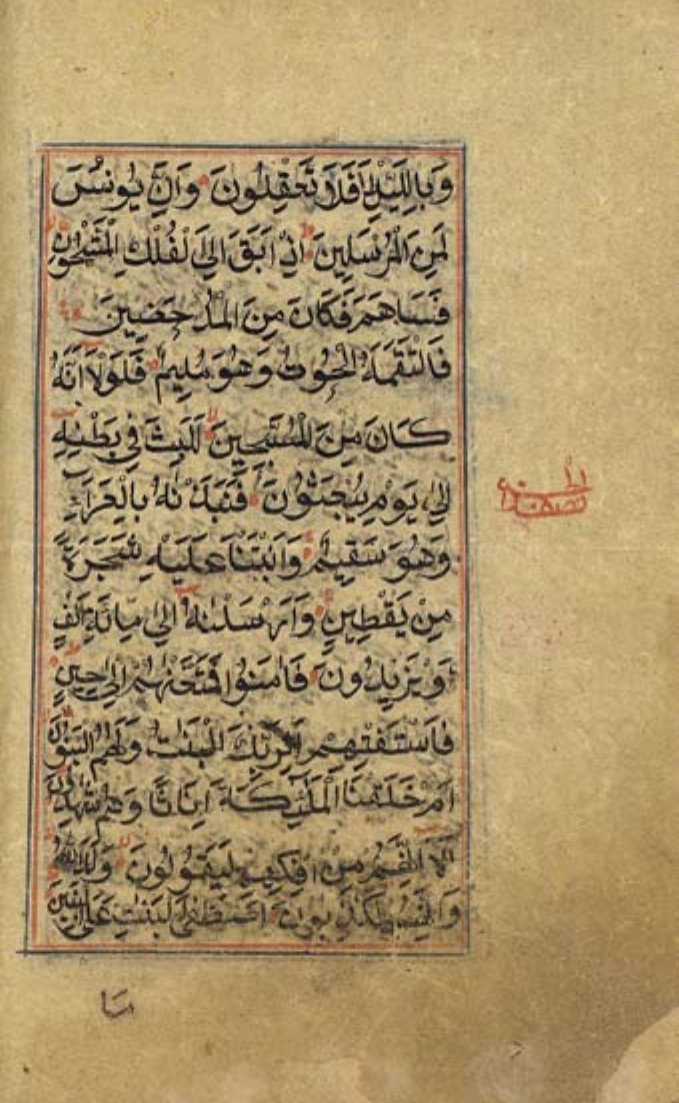 وَبِالَّيْلِ اَفَلَا تَعْقِلُوْنَ وَاِنَّ يُوْنُسَ
لَمِنَ الْمُرْسَلِيْنَ اِذْ اَبَقَ اِلَى الْفُلْكِ الْمَشْحُوْنِ
فَسَاهَمَ فَكَانَ مِنَ الْمُدْحَضِيْنَ
فَالْتَقَمَهُ الْحُوْتُ وَهُوَ مُلِيْمٌ فَلَوْلَا اَنَّهُ
كَانَ مِنَ الْمُسَبِّحِيْنَ لَلَبِثَ فِىْ بَطْنِهِ
اِلٰى يَوْمِ يُبْعَثُوْنَ فَنَبَذْنٰهُ بِالْعَرَاءِ
وَهُوَ سَقِيْمٌ وَاَنْبَتْنَا عَلَيْهِ شَجَرَةً
مِنْ يَقْطِيْنٍ وَاَرْسَلْنٰهُ اِلٰى مِائَةِ اَلْفٍ
اَوْ يَزِيْدُوْنَ فَاٰمَنُوْا فَمَتَّعْنٰهُمْ اِلٰى حِيْنٍ
فَاسْتَفْتِهِمْ اَلِرَبِّكَ الْبَنٰتُ وَلَهُمُ الْبَنُوْنَ
اَمْ خَلَقْنَا الْمَلٰئِكَةَ اِنَاثًا وَهُمْ شٰهِدُوْنَ
اَلَا اِنَّهُمْ مِنْ اِفْكِهِمْ لَيَقُوْلُوْنَ وَلَدَ اللّٰهُ
وَاِنَّهُمْ لَكٰذِبُوْنَ اَصْطَفَى الْبَنٰتِ عَلَى الْبَنِيْنَ
مَا